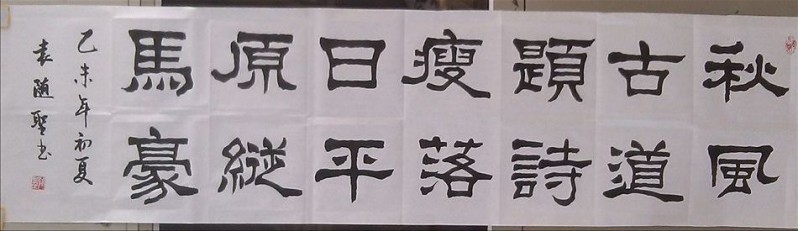 秋風
古道
題詩
瘦落
日平
原縱
馬豪
乙未年初夏
袁随聖书